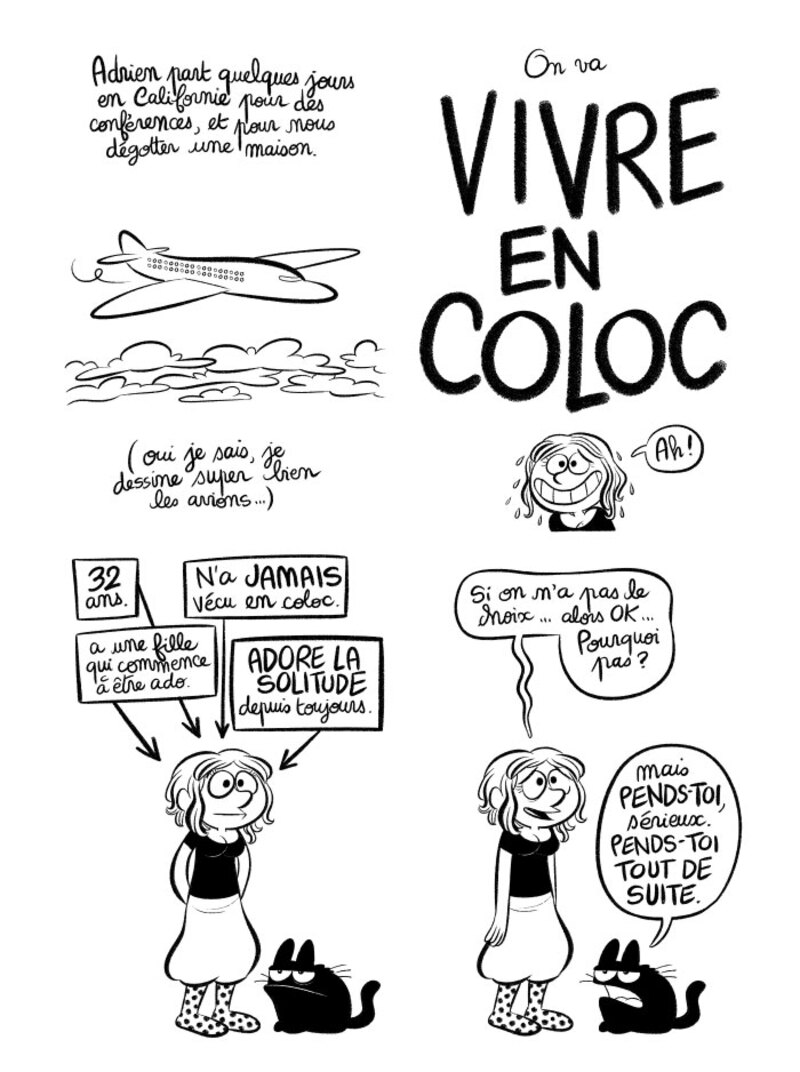 Adrien part quelques jours
en Californie pour des
conférences, et pour nous
dégotter une maison.
On va
VIVRE
EN
COLOC
Ah!
(oui je sais, je
dessine super bien
les avions...)
32
ans.
N'a JAMAIS
vécu en coloc.
a une fille
qui commence
à être ado.
ADORE LA
SOLITUDE
depuis toujours.
Si on n'a pas le
choix... alors OK...
Pourquoi
pas?
mais
PENDS-TOI,
sérieux.
PENDS-TOI
TOUT DE
SUITE.